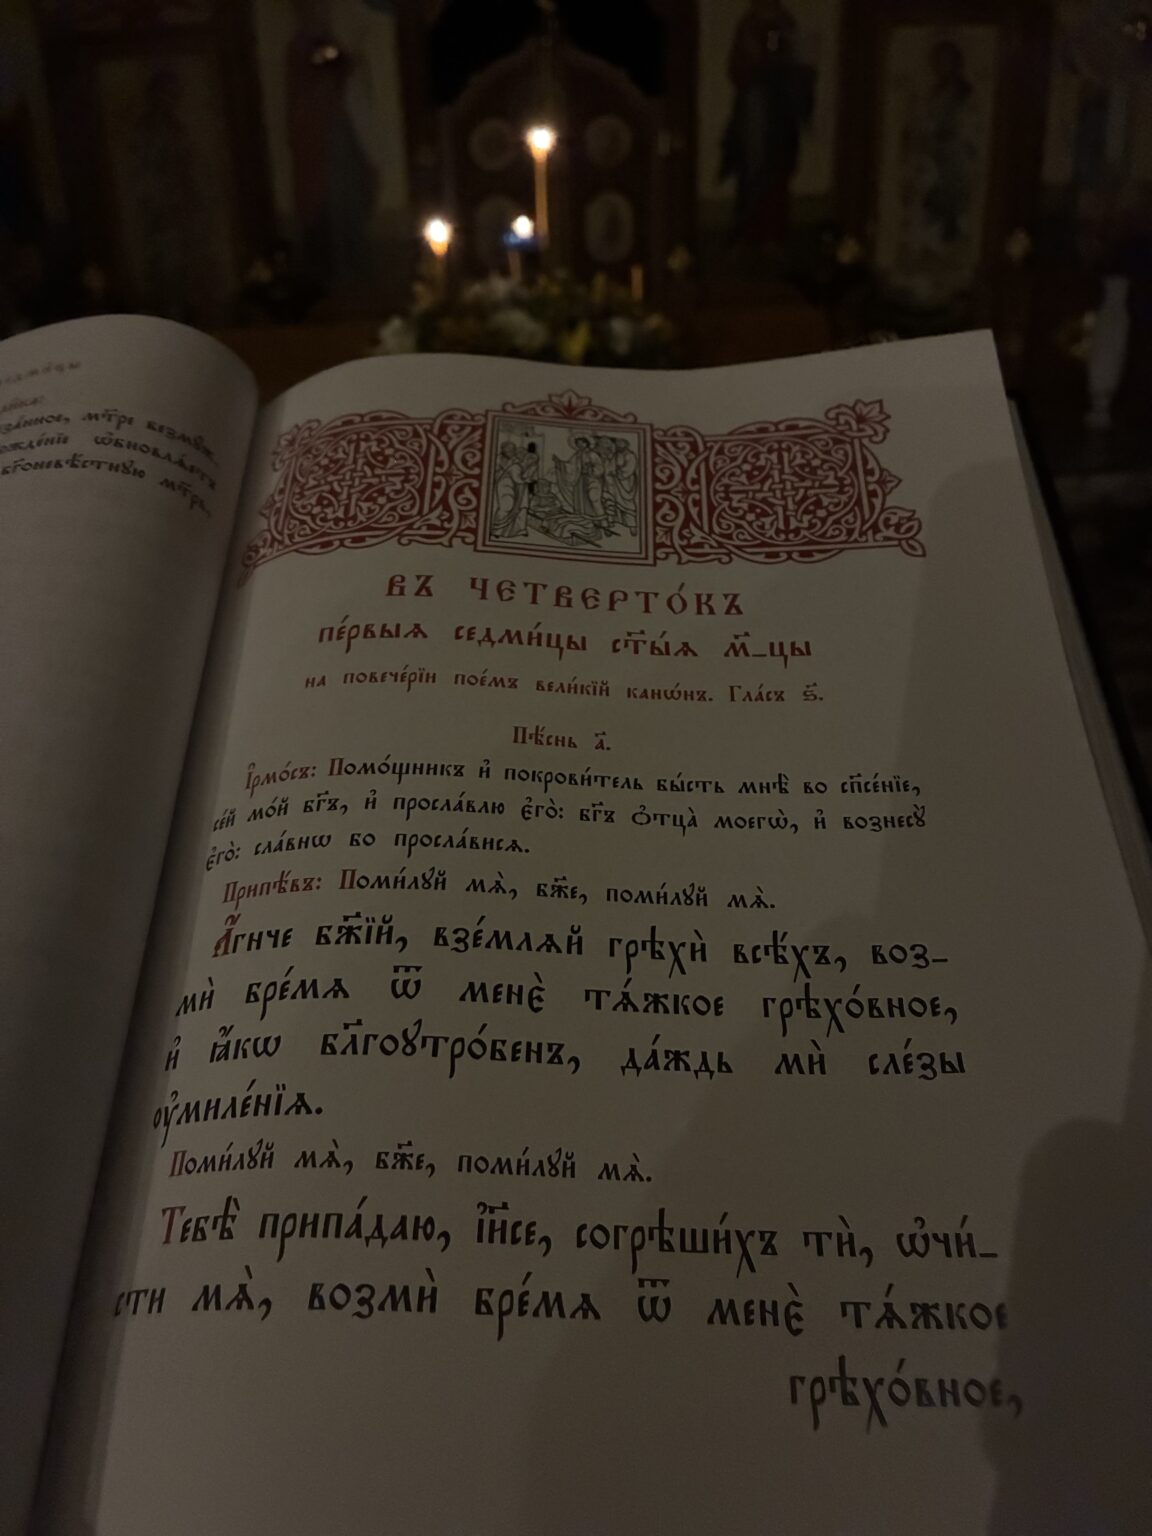 мт҃рє безмꙋж-
ѡ҆бновлѧ́єтъ
бг҃оневѣ́стнꙋю мт҃рь,
ВЪ ЧЕТВЕРТО́КЪ
пе́рвыѧ седми́цы ст҃ы́ѧ м҃-цы
на повече́рїи пое́мъ вели́кїй канѡ́нъ. Гла́съ ѕ҃.
Пѣ́снь а҃.
І҆рмо́съ: Помо́щникъ и҆ покрови́тель бы́сть мнѣ̀ во сп҃се́нїе,
се́й мо́й бг҃ъ, и҆ просла́влю є҆го̀: бг҃ъ ѻ҆тца̀ моегѡ̀, и҆ вознесꙋ̀
є҆го̀: сла́внѡ бо просла́висѧ.
Припѣ́въ: Поми́лꙋй мѧ̀, бж҃е, поми́лꙋй мѧ̀.
А҆́гнче бж҃їй, взе́млѧй грѣхѝ всѣ́хъ, воз-
мѝ бре́мѧ ѿ менє̀ тѧ́жкое грѣхо́вное,
и҆ ꙗ҆́кѡ бл҃гоꙋтро́бенъ, да́ждь мѝ сле́зы
ᲂу҆миле́нїѧ.
Поми́лꙋй мѧ̀, бж҃е, поми́лꙋй мѧ̀.
Тебѣ̀ припа́даю, і҆и҃се, согрѣши́хъ тѝ, ѡ҆чи́-
сти мѧ̀, возмѝ бре́мѧ ѿ менє̀ тѧ́жкое
грѣхо́вное,